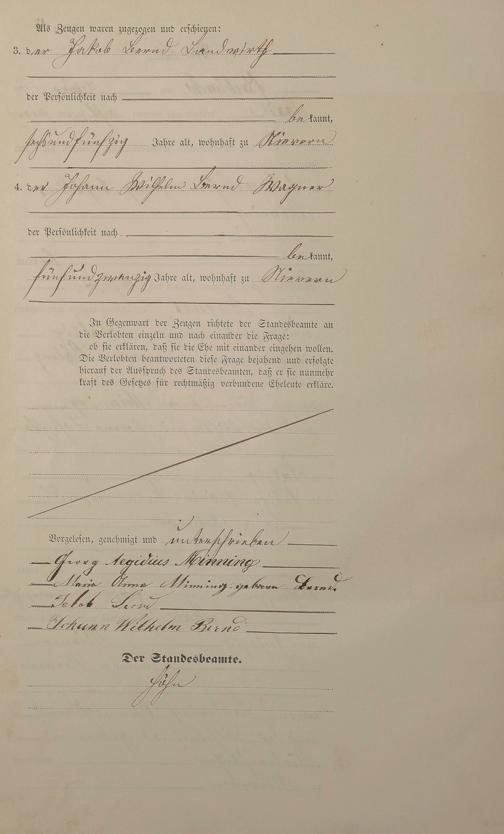 Als Zeugen waren zugezogen und erschienen:
3. der Jakob Bernd Landwirth
der Persönlichkeit nach
be kannt,
sechsundfünfzig Jahre alt, wohnhaft zu Nievern
4. der Johann Wilhelm Bernd Wagner
der Persönlichkeit nach
be kannt,
fünfundzwanzig Jahre alt, wohnhaft zu Nievern
In Gegenwart der Zeugen richtete der Standesbeamte an
die Verlobten einzeln und nach einander die Frage:
ob sie erklären, daß sie die Ehe mit einander eingehen wollen.
Die Verlobten beantworteten diese Frage bejahend und erfolgte
hierauf der Ausspruch des Standesbeamten, daß er sie nunmehr
kraft des Gesetzes für rechtmäßig verbundene Eheleute erkläre.
Vorgelesen, genehmigt und unterschrieben
Georg Aegidius Minning
Maria Anna Minning geborne Bernd
Jakob Bernd
Johann Wilhelm Bernd
Der Standesbeamte.
Höhn